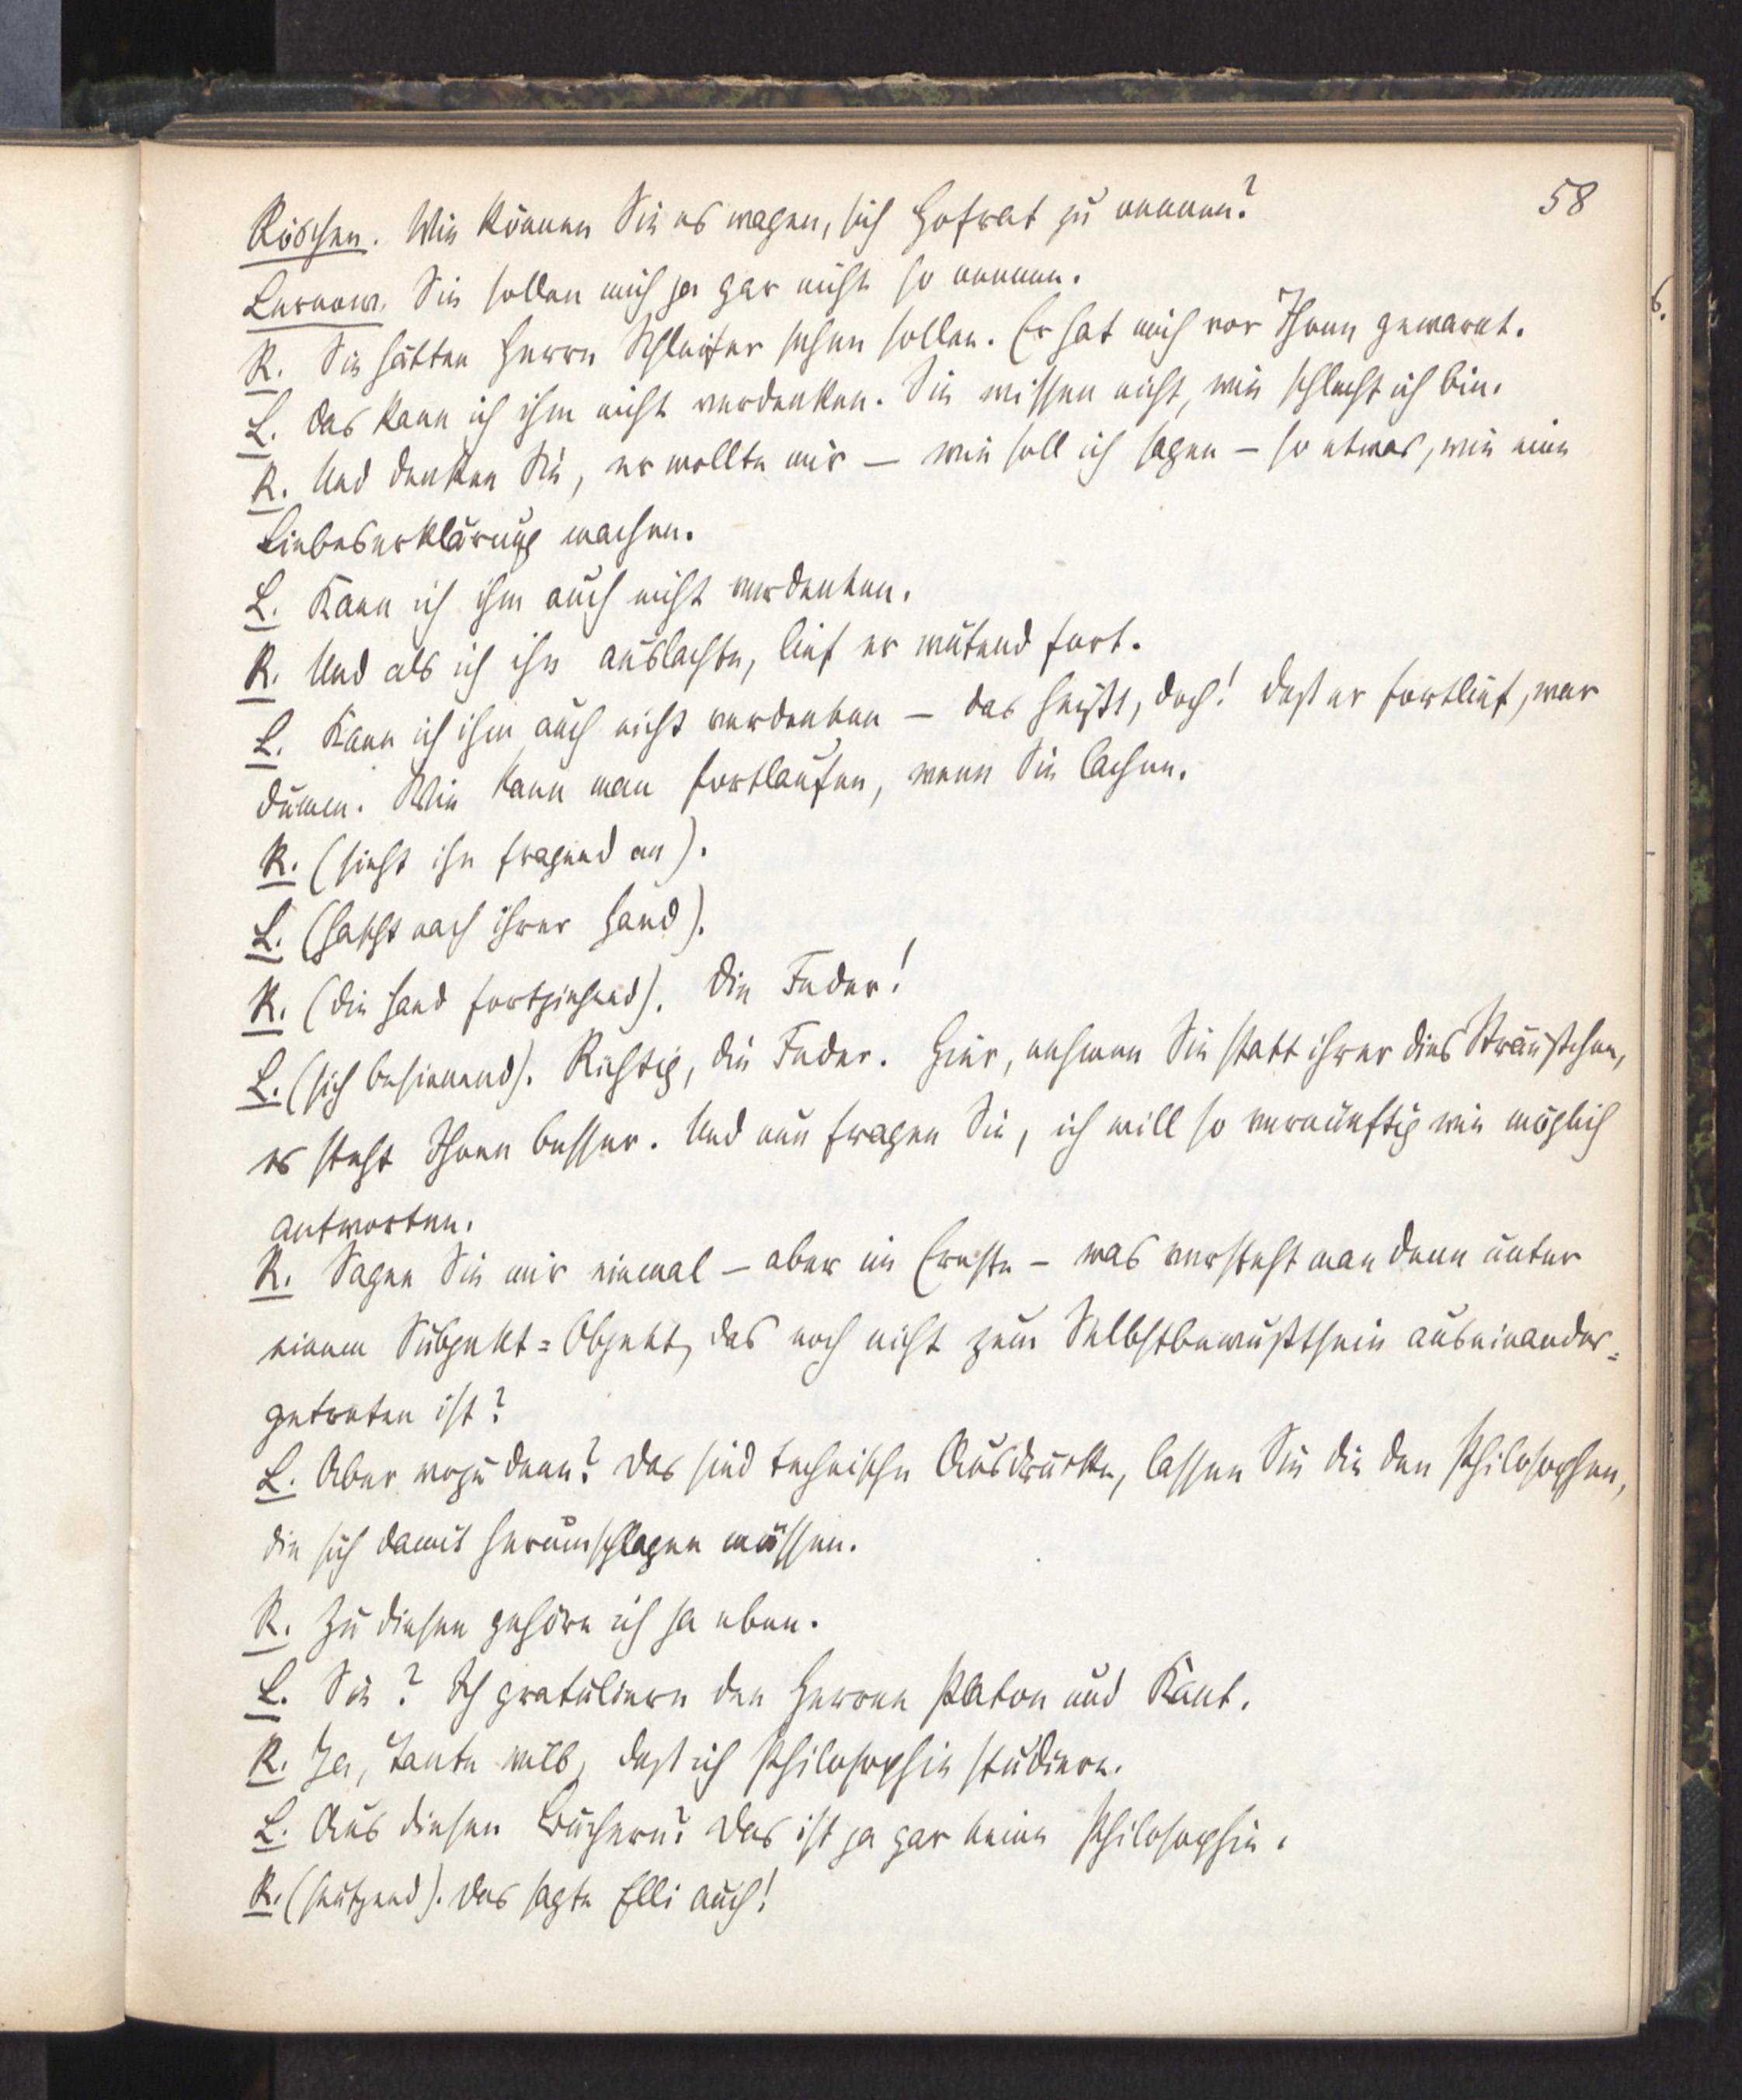 58
Röschen. Wie können Sie es wagen, sich Hofrat zu nennen?
Larnow. Sie sollen mich ja gar nicht so nennen.
R. Sie hätten Herrn Schleifer sehen sollen. Er hat mich vor Ihnen gewarnt.
L. Das kann ich ihm nicht verdenken. Sie wissen nicht, wie schlecht ich bin.
R. Und denken Sie, er wollte mir — wie soll ich sagen — so etwas, wie eine
Liebeserklärung machen.
L. Kann ich ihm auch nicht verdenken.
R. Und als ich ihn auslachte, lief er wütend fort.
L. Kann ich ihm auch nicht verdenken — das heißt, doch! Daß er fortlief, war
dumm. Wie kann man fortlaufen, wenn Sie lachen.
R. (sieht ihn fragend an).
L. (hascht nach ihrer Hand).
R. (die Hand fortziehend). Die Feder!
L. (sich besinnend). Richtig, die Feder. Hier, nehmen Sie statt ihrer dies Sträußchen,
es steht Ihnen besser. Und nun fragen Sie, ich will so vernünftig wie möglich
antworten.
R. Sagen Sie mir einmal — aber im Ernste — was versteht man denn unter
einem Subjekt=Objekt, das noch nicht zum Selbstbewußtsein auseinander=
getreten ist?
L. Aber wozu denn? Das sind technische Ausdrücke, lassen Sie die den Philosophen,
die sich damit herumschlagen müssen.
R. Zu diesen gehöre ich ja eben.
L. Sie? Ich gratuliere den Herren Platon und Kant.
R. Ja, Tante will, daß ich Philosophie studiere.
L. Aus diesen Büchern? Das ist ja gar keine Philosophie.
R. (stutzend). Das sagte Elli auch!